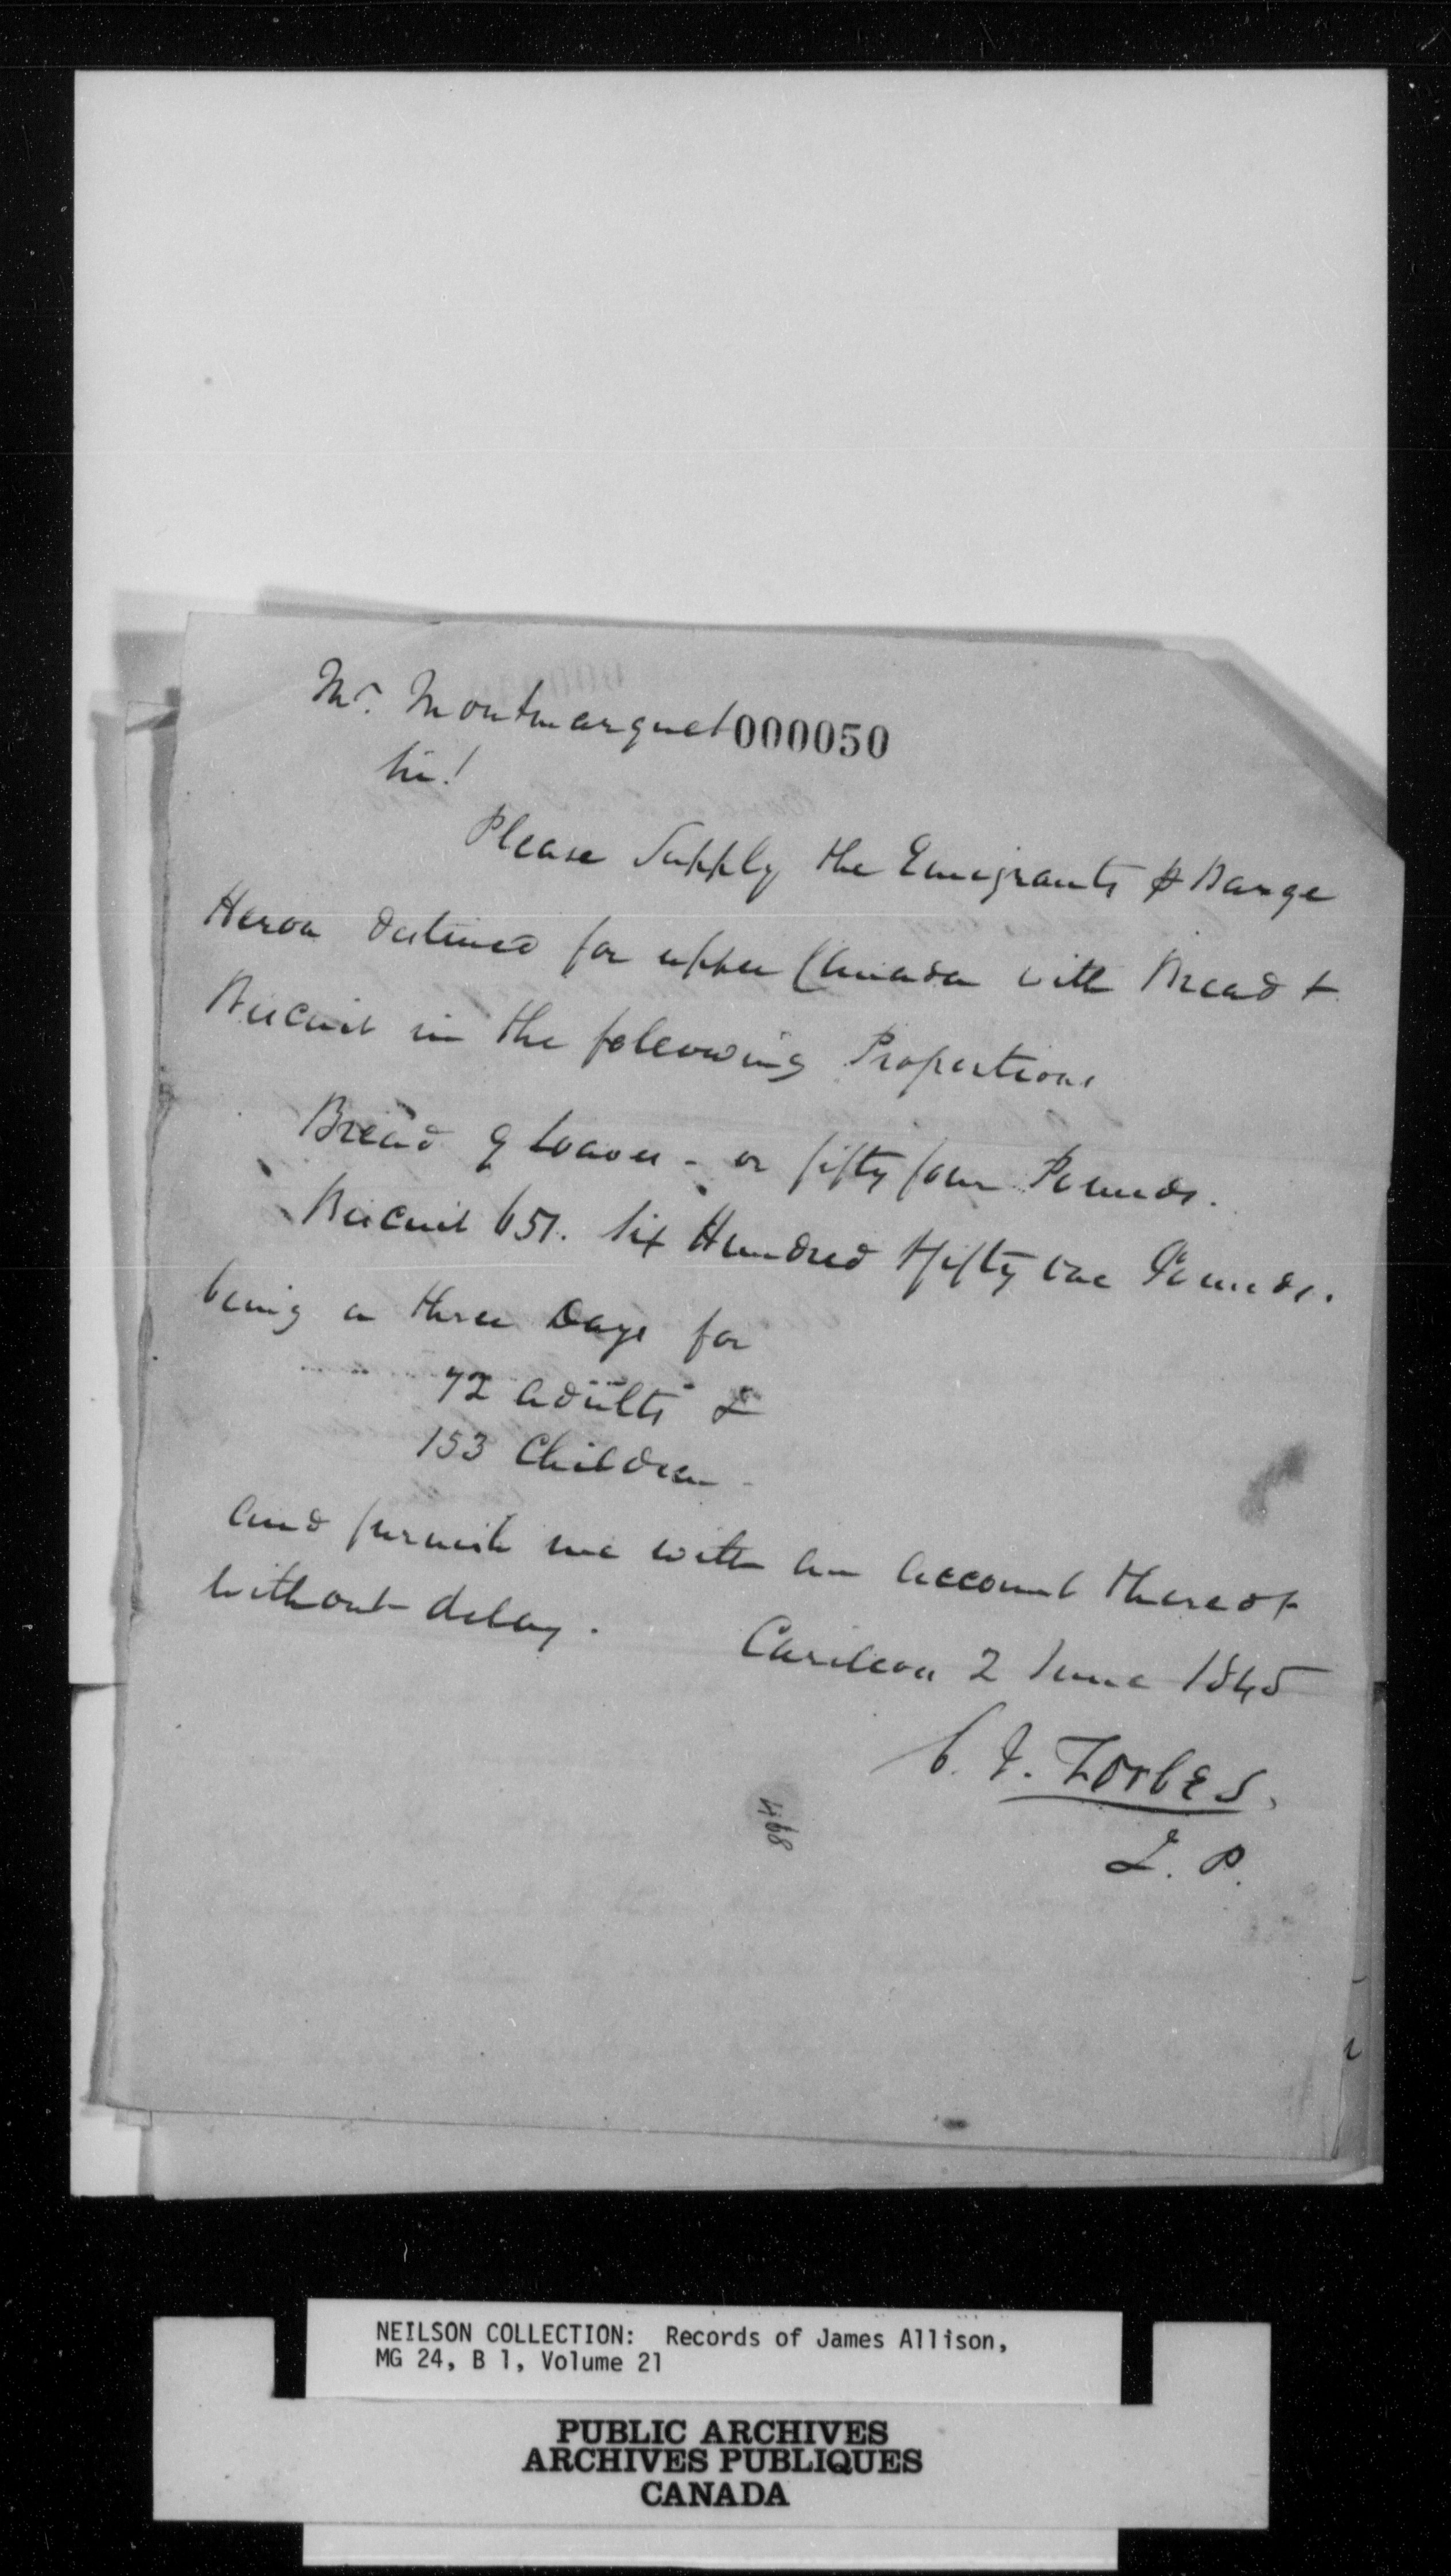 Mr. Montmarquet 000050
Sir!
Please Supply the Emigrants p Barge
Heron destined for upper Canada with Bread +
Biscuit in the following Proportions
Bread 9 Loaves - or fifty four Pounds.
Biscuit 651. Six Hundred & fifty one Pounds.
being a three Days for
72 adults &
153 Children
and furnish me with an account thereof
without delay.
Carillon 2 June 1845
C. J. Forbes.
J. P.
468
NEILSON COLLECTION: Records of James Allison,
MG 24, B 1, Volume 21
PUBLIC ARCHIVES
ARCHIVES PUBLIQUES
CANADA